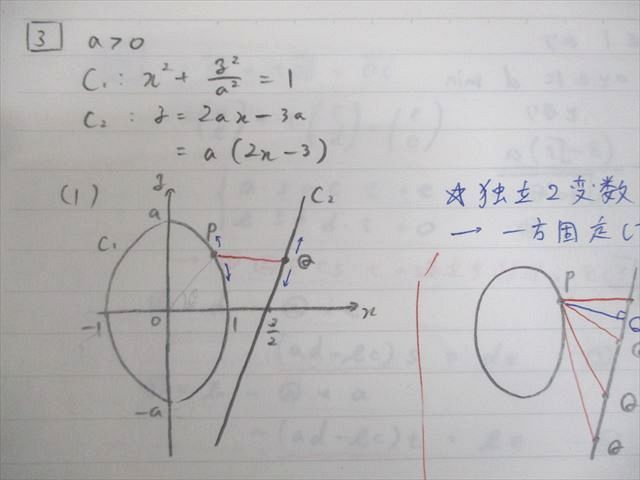 3 a>0
C₁: x² + y²/a² = 1
C₂ : y = 2ax - 3a
= a (2x - 3)
(1)
y
a
C₁
P
C₂
Q
-1
0
θ
1
3/2
x
-a
☆ 独立2変数
→ 一方固定し
P
Q
Q
Q
Q